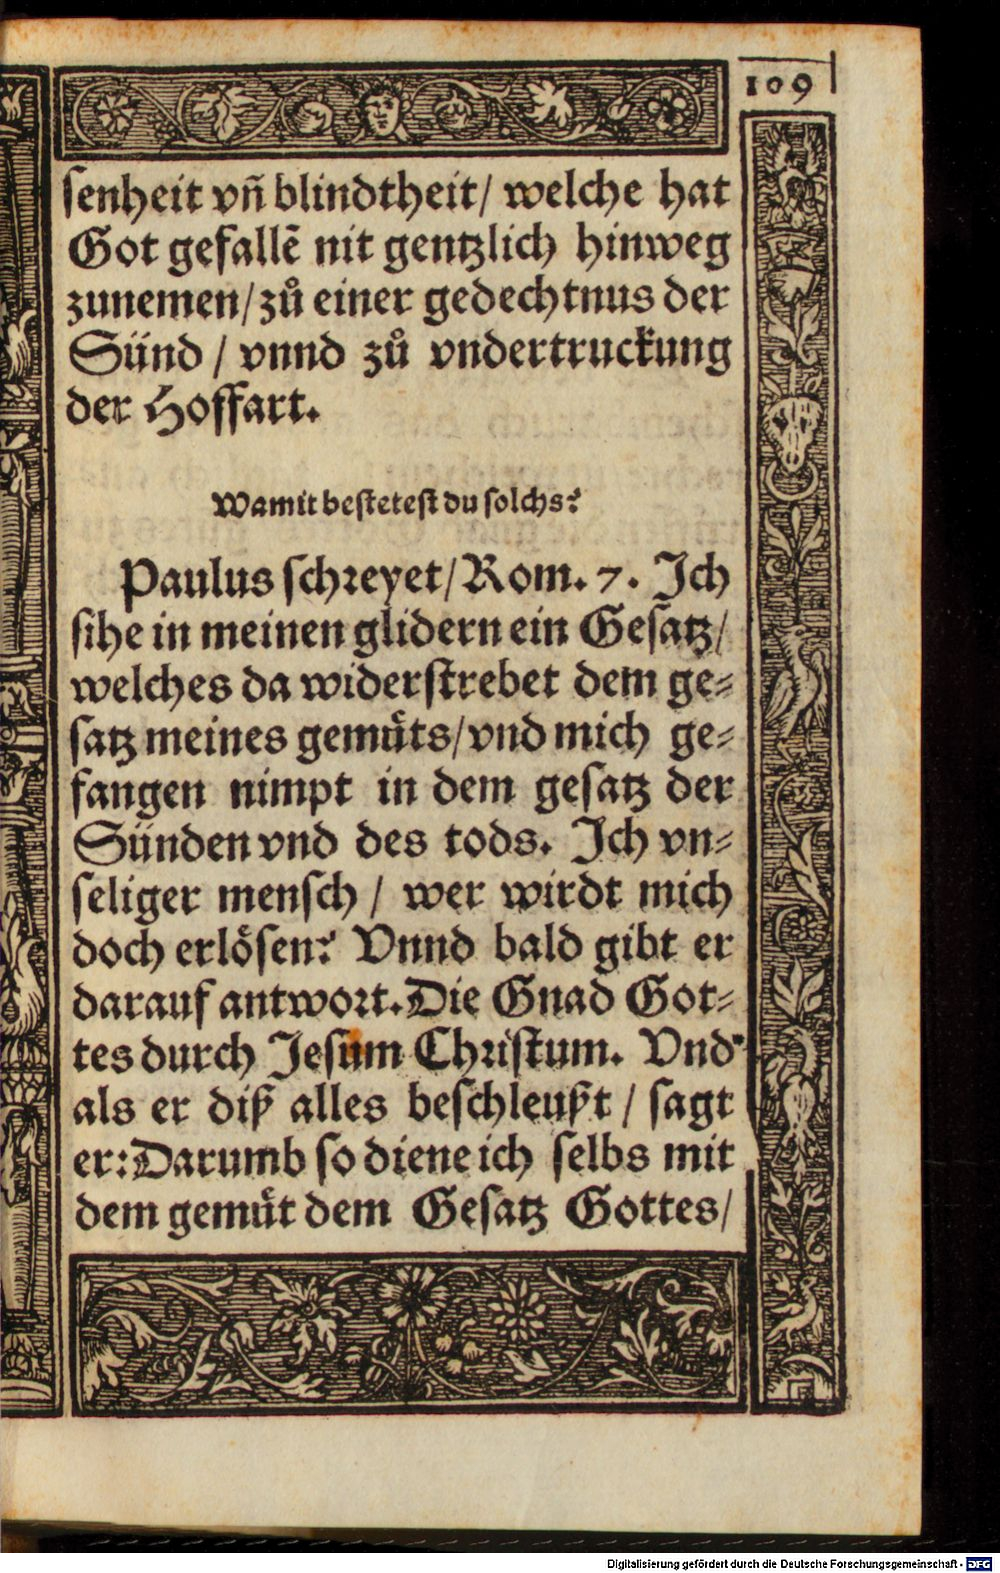 109
senheit vñ blindtheit/ welche hat
Got gefallẽ nit gentzlich hinweg
zunemen/ zů einer gedechtnus der
Sünd / vnnd zů vndertruckung
der Hoffart.
Wamit bestetest du solchs?
Paulus schreyet/ Rom. 7. Ich
sihe in meinen glidern ein Gesatz/
welches da widerstrebet dem ge⸗
satz meines gemüts/ vnd mich ge⸗
fangen nimpt in dem gesatz der
Sünden vnd des tods. Ich vn⸗
seliger mensch / wer wirdt mich
doch erlösen? Vnnd bald gibt er
darauf antwort. Die Gnad Got⸗
tes durch Jesum Christum. Vnd
als er diß alles beschleußt / sagt
er: Darumb so diene ich selbs mit
dem gemüt dem Gesatz Gottes/
Digitalisierung gefördert durch die Deutsche Forschungsgemeinschaft - DFG